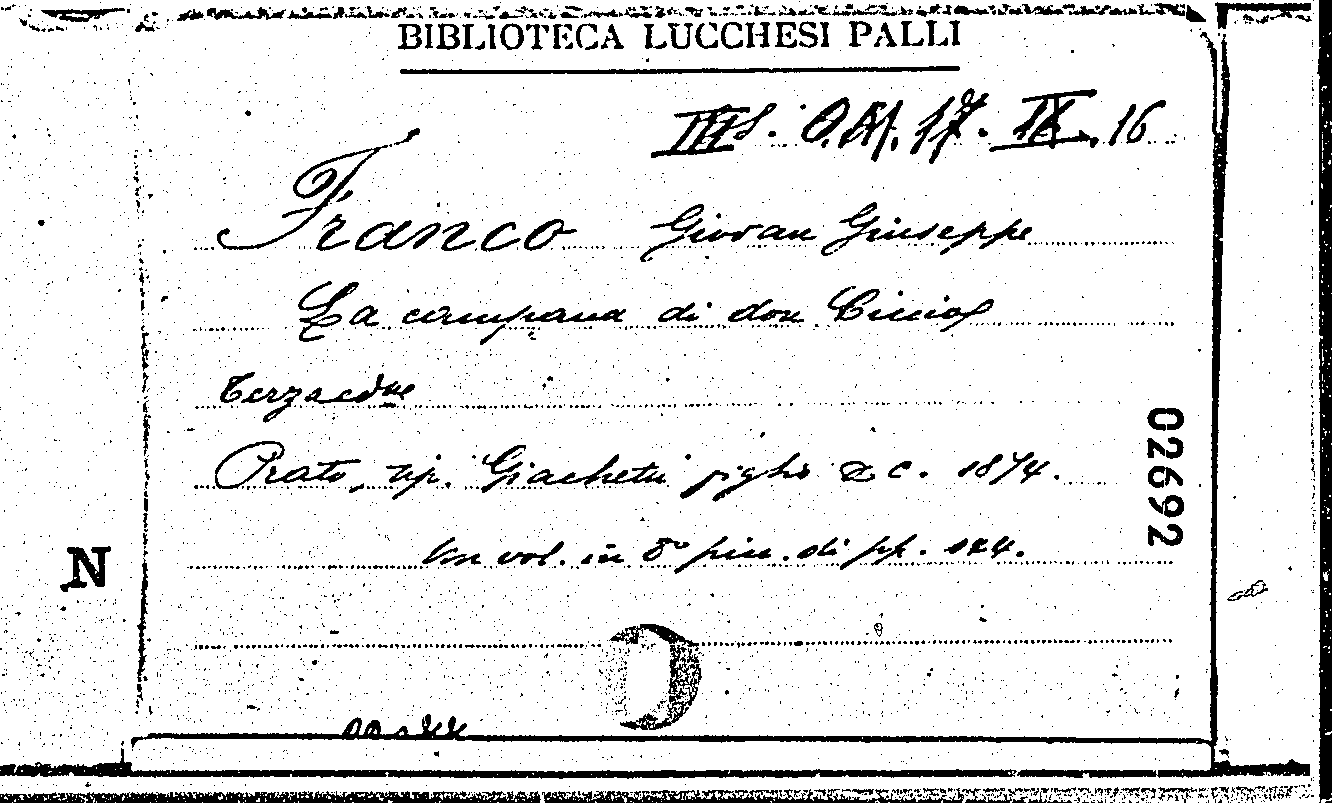 BIBLIOTECA LUCCHESI PALLI
17. IX. 16
Franco Giovan Giuseppe
La campana di don Ciccio
Terza edne
Prato, tip. Giachetti figlio e c. 1874.
Un vol. in 8° picc. di pp. 124.
02692
N